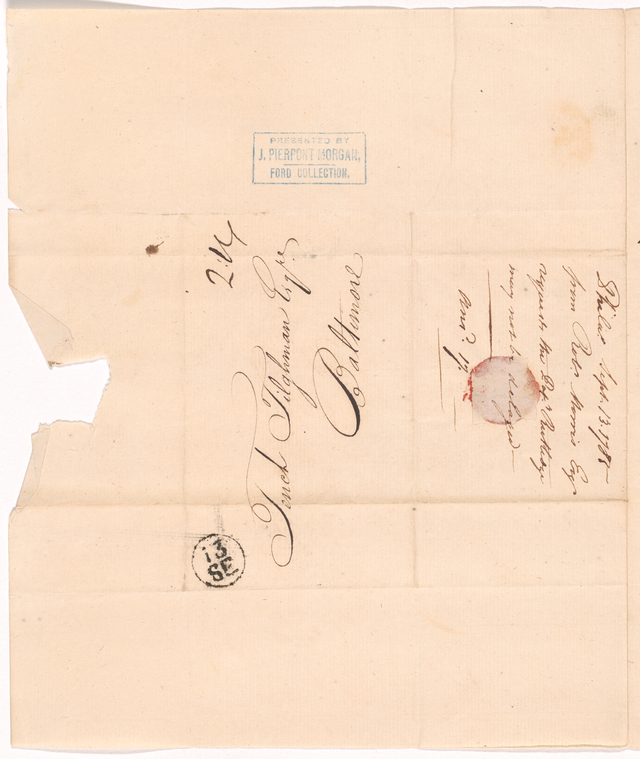 PRESENTED BY
J. PIERPONT MORGAN.
FORD COLLECTION.
2:
Tench Tilghman Esqre.
Baltimore
13
SE
Philada Sept. 13. 1785
from Robt Morris Esqr
requests the Rutledge
may not be delayed
Ansd. 17